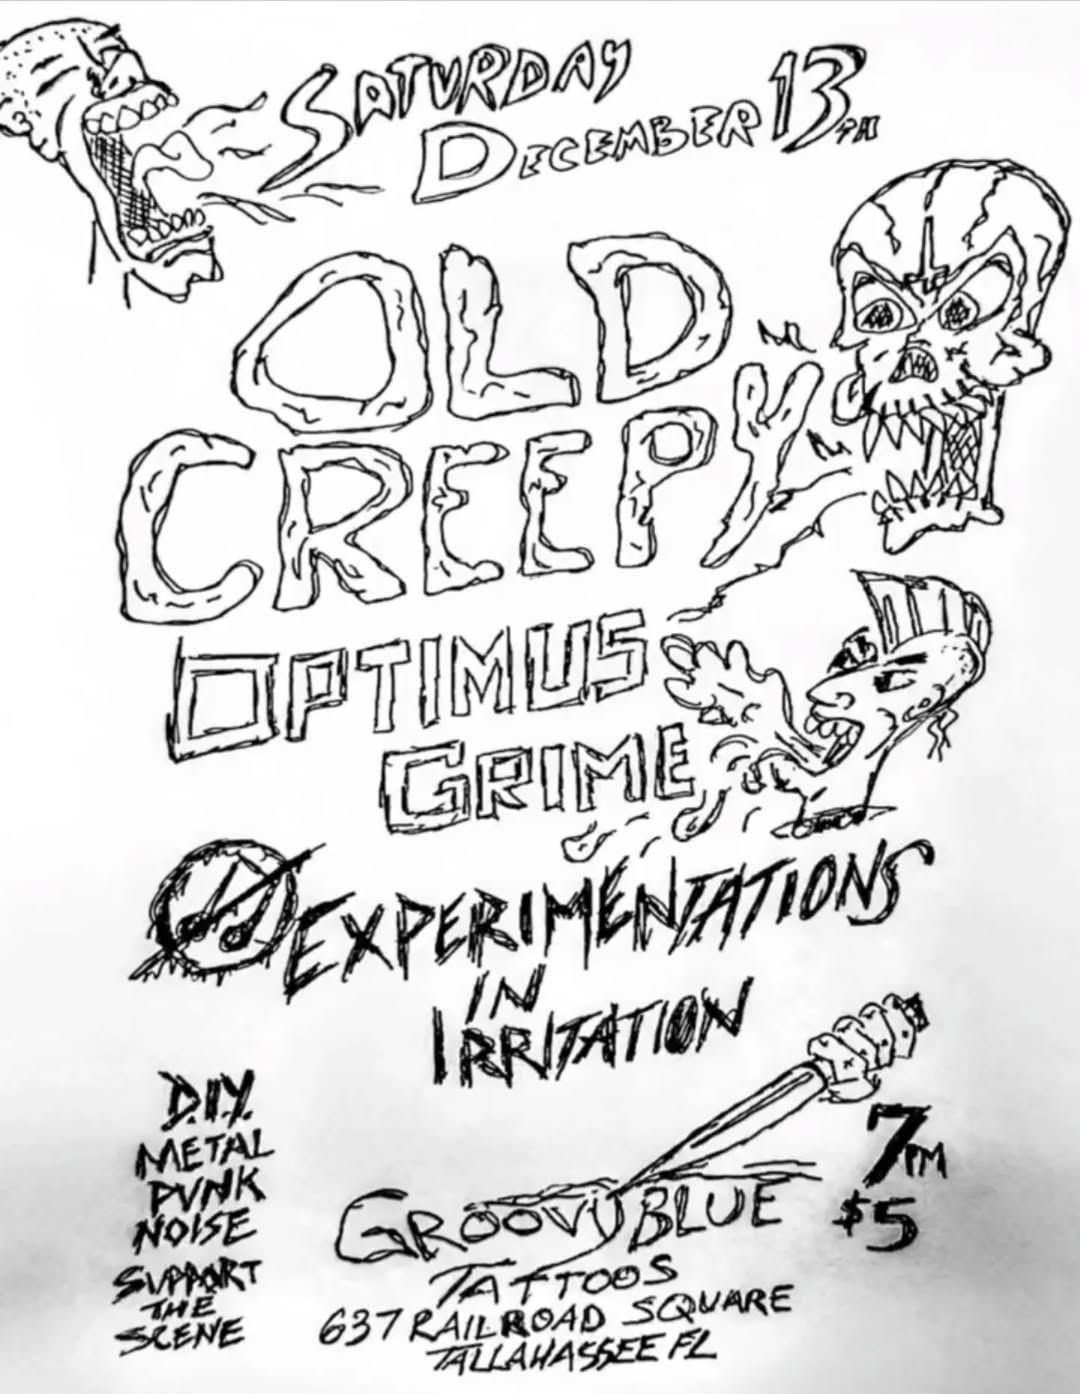 SATURDAY
DECEMBER 13TH
OLD
CREEPY
OPTIMUS
GRIME
EXPERIMENTATIONS
IN
IRRITATION
D.I.Y.
METAL
PUNK
NOISE
SUPPORT
THE
SCENE
7PM
$5
GROOVY BLUE
TATTOOS
637 RAILROAD SQUARE
TALLAHASSEE FL